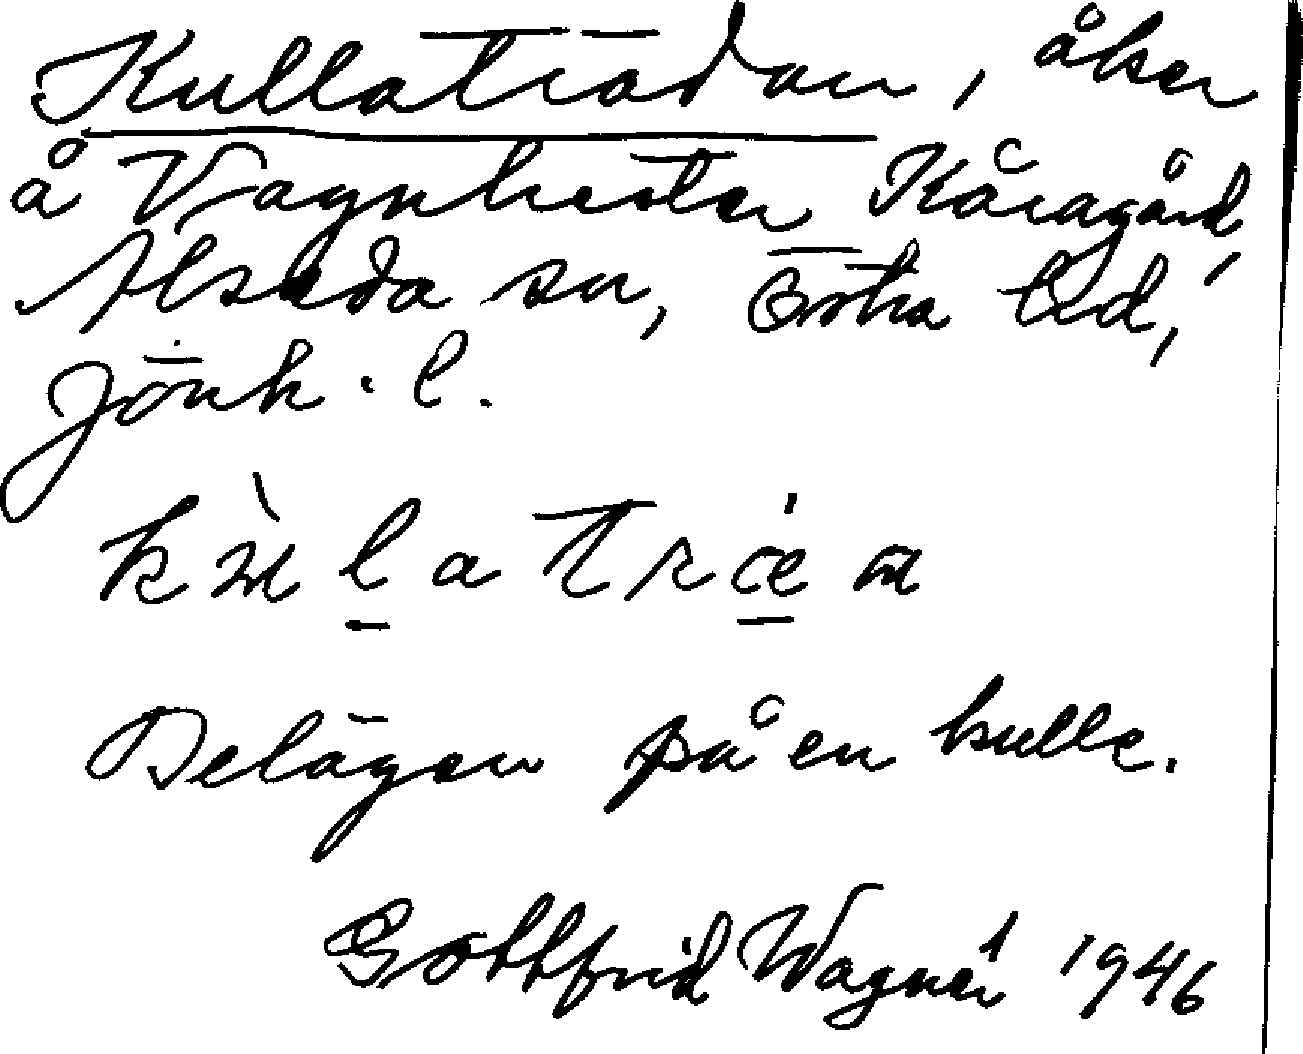 Kullaträdan, åker
å Vagnhester Kåragård,
Alseda sn, Östra hd,
Jönk. l.
kùlatrǽn
Belägen på en kulle.
Gottfrid Wagnér 1946